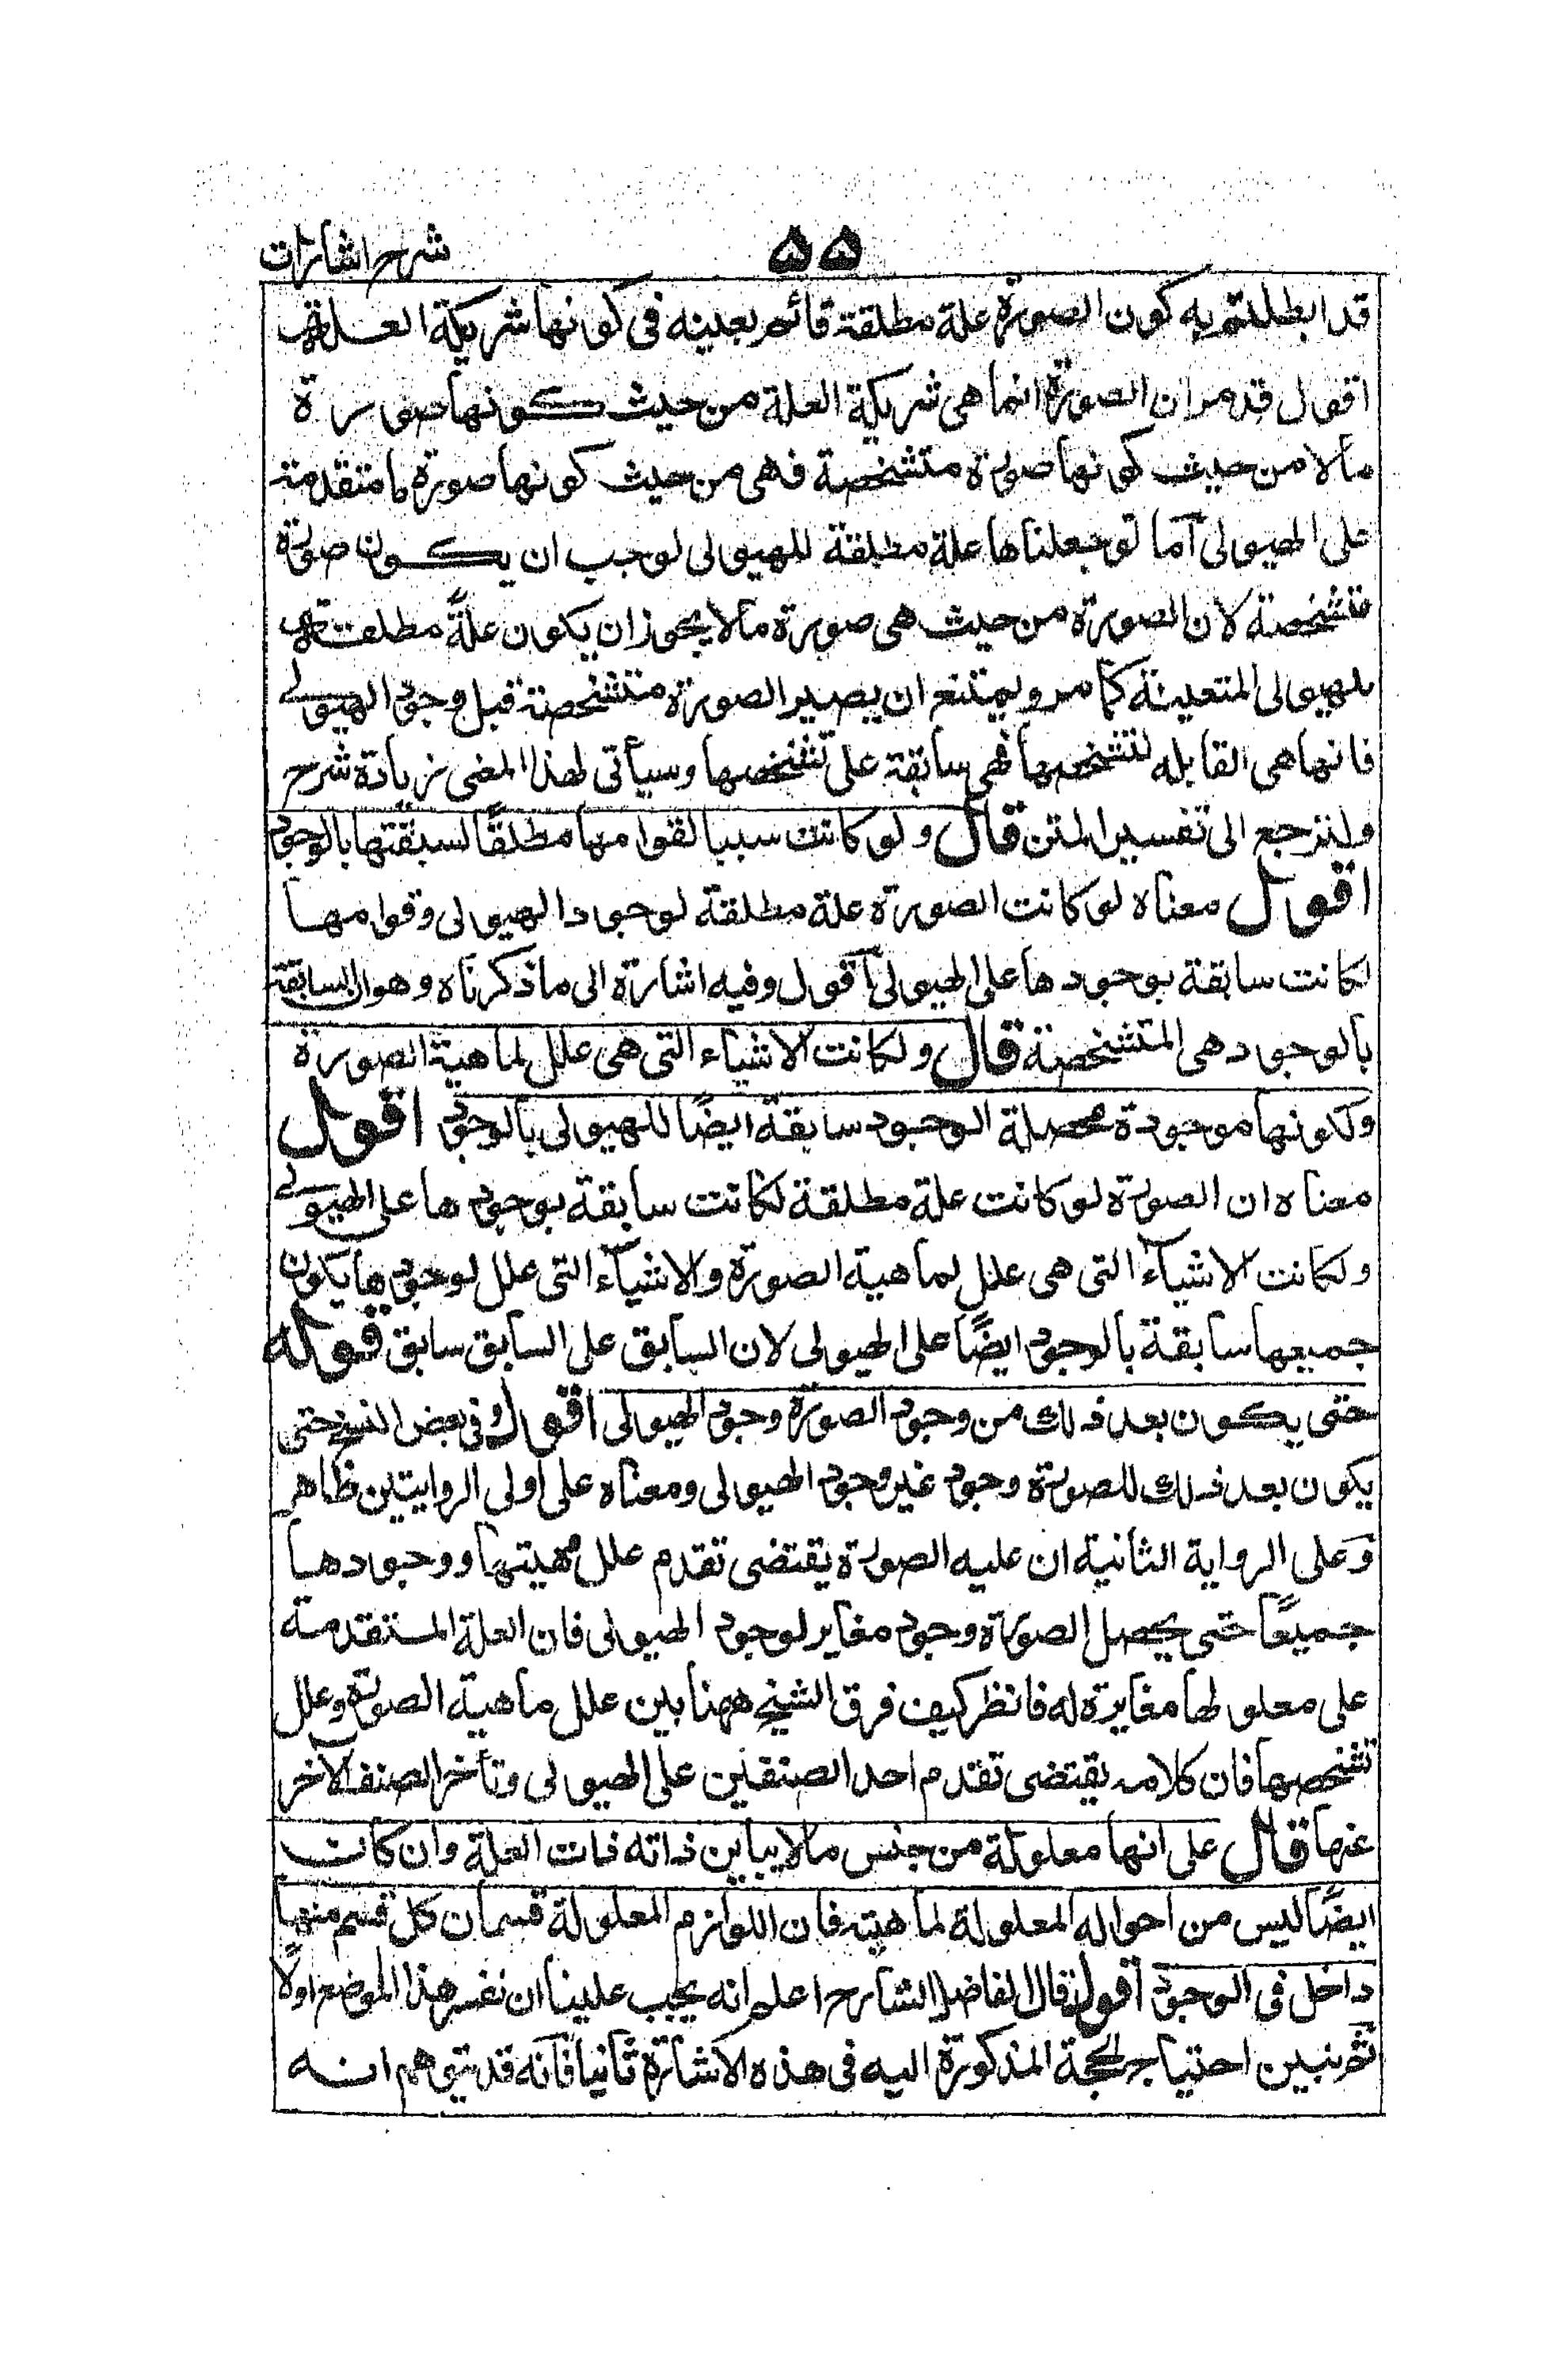 شرح اشارات
۵۵
قد ابطلتم به كون الصورة علة مطلقة قائم بعينه فى كونها شريكة العلة
اقول قد مر ان الصورة انما هى شريكة العلة من حيث كونها صورة
ما لا من حيث كونها صورة متشخصة فهى من حيث كونها صورة ما متقدمة
على الهيولى اما لو جعلناها علة مطلقة للهيولى لوجب ان يكون صورة
متشخصة لان الصورة من حيث هى صورة ما لا يجوز ان يكون علةً مطلقة
للهيولى المتعينة كما مر ويمتنع ان يصير الصورة متشخصة قبل وجود الهيولى
فانها هى القابله لتشخصها فهى سابقة على تشخصها وسيأتى لهذا المعنى زيادة شرح
ولنرجع الى تفسير المتن قال ولو كانت سببا لقوامها مطلقًا لسبقتها بالوجود
اقول معناه لو كانت الصورة علة مطلقة لوجود الهيولى وقوامها
لكانت سابقة بوجودها على الهيولى اقول وفيه اشارة الى ما ذكرناه وهو ان السابقة
بالوجود هى المتشخصة قال ولكانت الاشياء التى هى علل لماهية الصورة
ولكونها موجودة محصلة الوجود سابقة ايضًا للهيولى بالوجود اقول
معناه ان الصورة لو كانت علة مطلقة لكانت سابقة بوجودها على الهيولى
ولكانت الاشياء التى هى علل لماهية الصورة والاشياء التى علل لوجودها يكون
جميعها سابقة بالوجود ايضًا على الهيولى لان السابق على السابق سابق قوله
حتى يكون بعد ذلك من وجود الصورة وجود الهيولى اقول وفى بعض النسخ حتى
يكون بعد ذلك للصورة وجود غير وجود الهيولى ومعناه على اولى الروايتين ظاهر
وعلى الرواية الثانية ان عليه الصورة يقتضى تقدم علل مهيتها ووجودها
جميعًا حتى يحصل الصورة وجود مغاير لوجود الهيولى فان العلة المتقدمة
على معلولها مغايرة له فانظر كيف فرق الشيخ ههنا بين علل ماهية الصورة وعلل
تشخصها فان كلامه يقتضى تقدم احد الصنفين على الهيولى وتأخر الصنف الآخر
عنها قال على انها معلولة من جنس ما لا يباين ذاته ذات العلة وان كانت
ايضًا ليس من احواله المعلولة لماهيته فان اللوازم المعلولة قسمان وكل قسم منها
داخل فى الوجود اقول قال الفاضل الشارح اعلم انه يجب علينا ان نفسر هذا الموضع اولًا
ثم نبين احتياج الحجة المذكورة اليه فى هذه الاشارة ثانيا فانه قد يتوهم انه